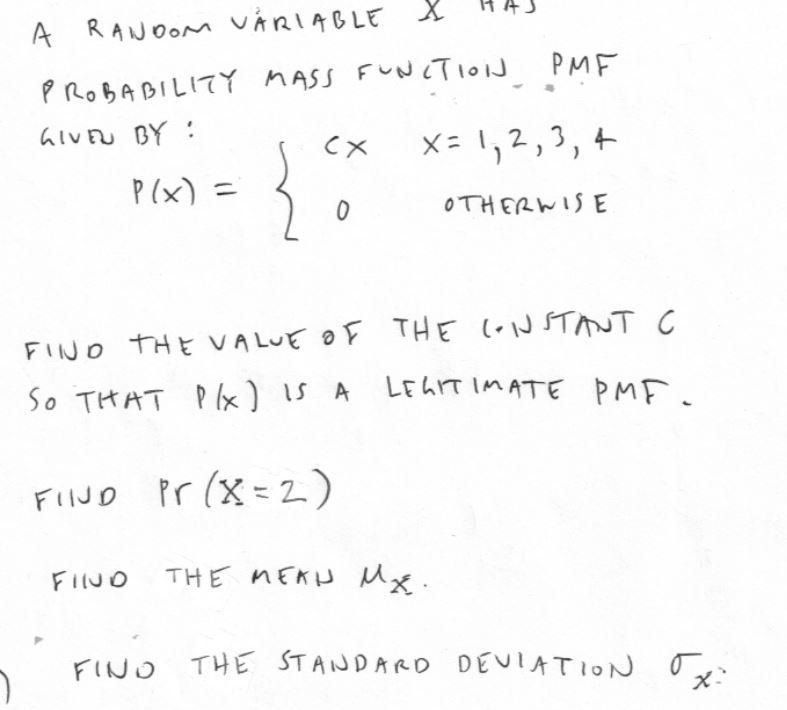 A RANDOM VARIABLE X HAS
PROBABILITY MASS FUNCTION PMF
GIVEN BY :
P(x) = { cx x = 1, 2, 3, 4
0 OTHERWISE
FIND THE VALUE OF THE CONSTANT C
SO THAT P(x) IS A LEGITIMATE PMF.
FIND Pr (X = 2)
FIND THE MEAN μx.
FIND THE STANDARD DEVIATION σx.